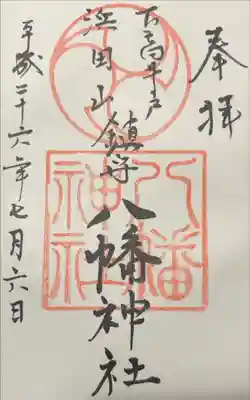 奉拝
下高井戸
浜田山
鎮守
八幡神社
平成二十六年七月六日
八幡
神社